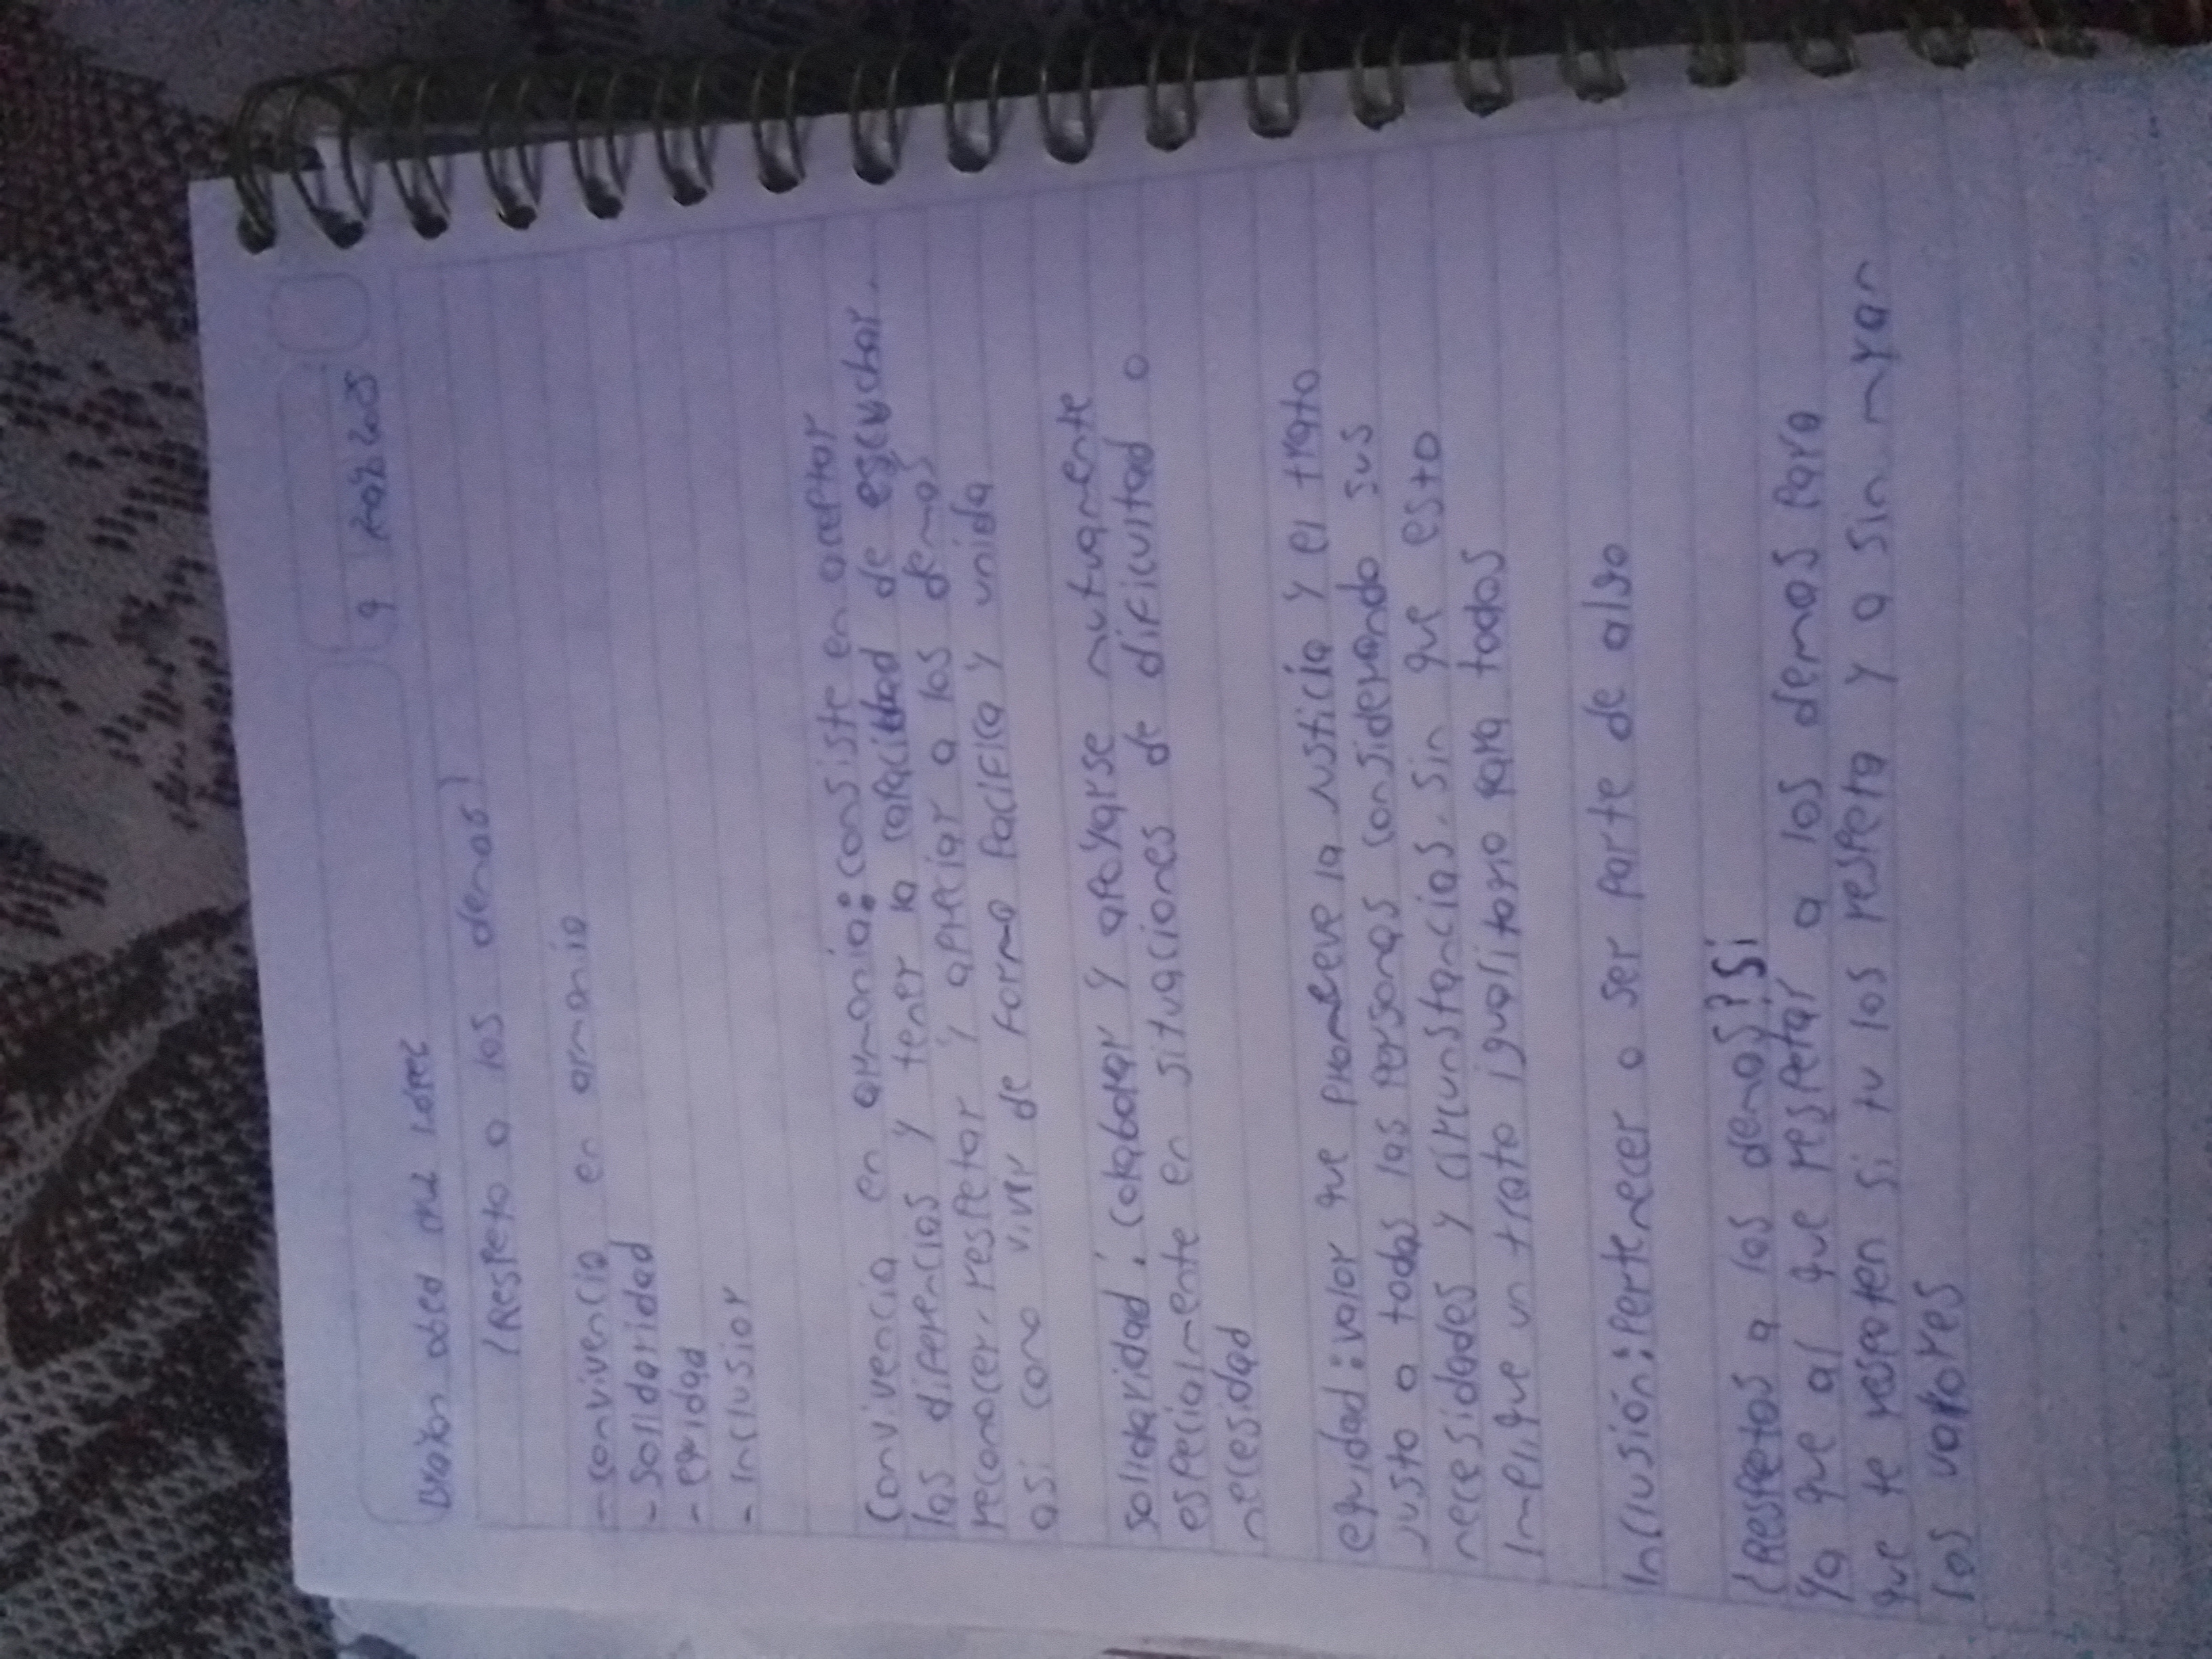 obed cruz López
¿Respeto a los demas?
- convivencia en armonia
- Solidaridad
- eqidad
- Inclusion
Convivencia en armonia: consiste en aceptar
las diferencias y tener la capacidad de escuchar.
reconocer, respetar y apreciar a los demas
asi como vivir de forma pacifica y unida
Solidaridad: colaborar y apoyarse mutuamente
especialmente en situaciones de dificultad o
necesidad
equidad: valor que promueve la justicia y el trato
justo a todas las personas considerando sus
necesidades y circunstancias. sin que esto
Implique un trato igualitario para todos
Inclusión: Pertenecer o ser parte de algo
¿Respetas a los demas? Si
Ya que al que respetar a los demas para
que te respeten si tu los respeta y a sin
los valores